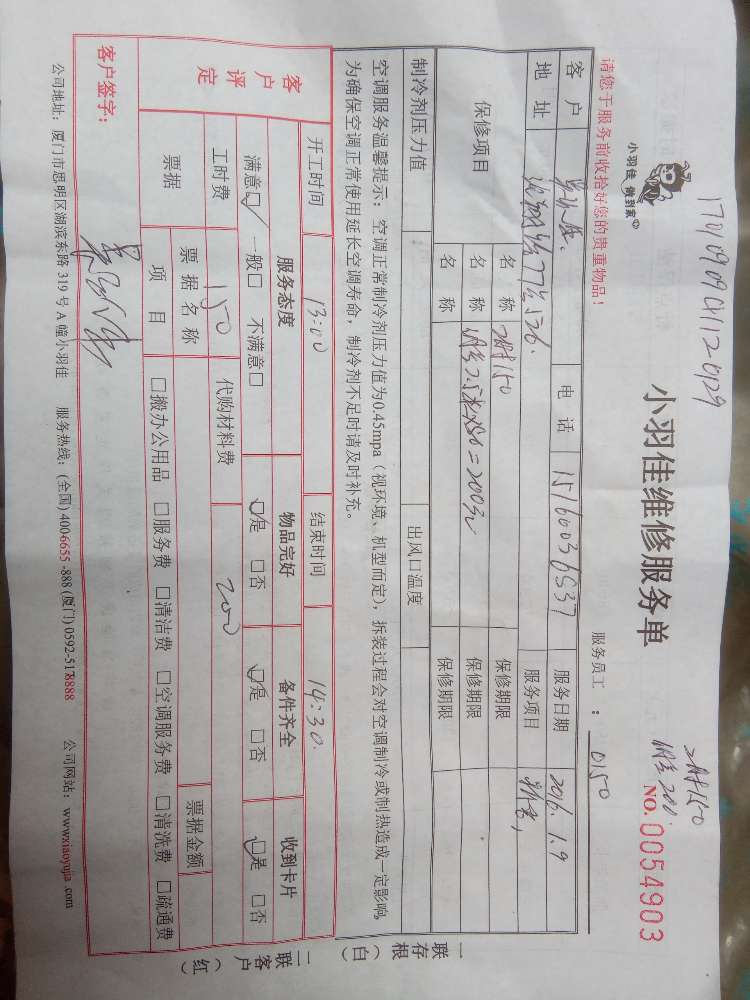 小羽佳 做到家
小羽佳维修服务单
NO.0054903
请您于服务前收拾好您的贵重物品！
服务员工 ： 0150
客户 电话 15160036537 服务日期 2016.1.9
地址 服务项目
保修项目 名称 150 保修期限
名称 保修期限
名称 保修期限
制冷剂压力值 出风口温度
空调服务温馨提示：空调正常制冷剂压力值为0.45mpa（视环境、机型而定），拆装过程会对空调制冷或制热造成一定影响，
为确保空调正常使用延长空调寿命，制冷剂不足时请及时补充。
开工时间 13:00 结束时间 14:30
客户评定 服务态度 物品完好 备件齐全 收到卡片
满意□ 一般□ 不满意□ □是 □否 □是 □否 □是 □否
工时费 150 代购材料费 200
票据 票据名称 票据金额
项目 □搬办公用品 □服务费 □清洁费 □空调服务费 □清洗费 □疏通费
客户签字：
公司地址：厦门市思明区湖滨东路 319 号 A 幢小羽佳 服务热线：(全国) 400-6655-888 (厦门) 0592-5178888 公司网站：www.xiaoyujia.com
一联存根（白）
二联客户（红）